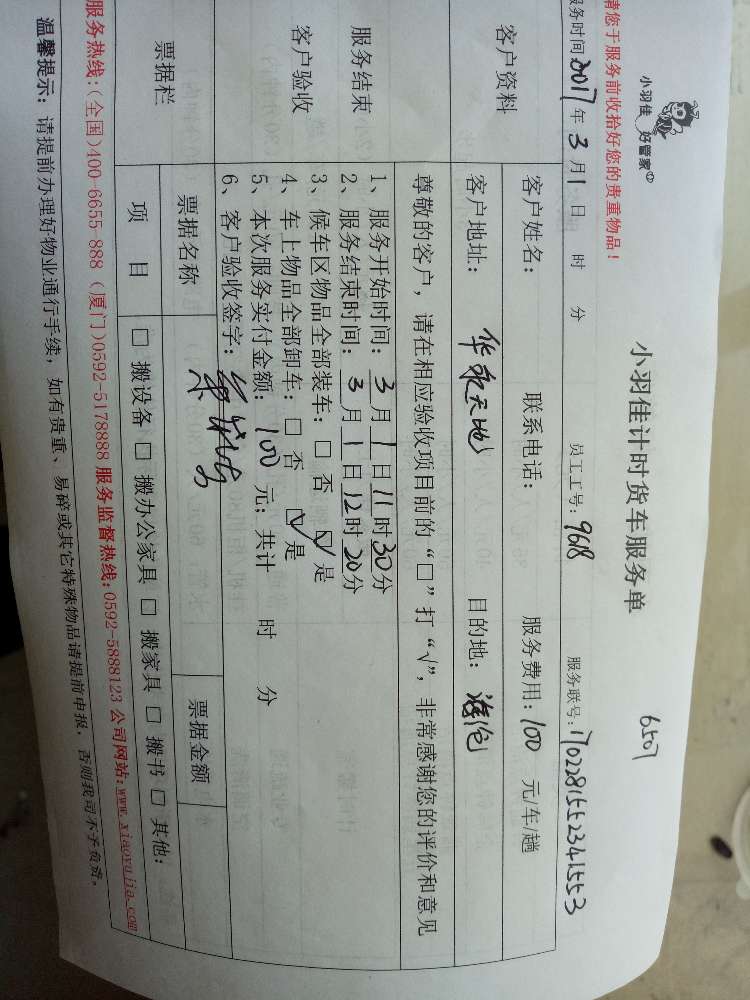 小羽佳 好管家
小羽佳计时货车服务单
6507
请您于服务前收拾好您的贵重物品！
服务时间 2017 年 3 月 1 日 时 分 员工工号: 9618 服务联号: 1702281552341553
客户资料
客户姓名: 联系电话: 服务费用: 100 元/车/趟
客户地址: 华永天地 目的地: 海沧
服务结束 客户验收
尊敬的客户，请在相应验收项目前的“□”打“√”，非常感谢您的评价和意见
1、服务开始时间: 3 月 1 日 11 时 30 分
2、服务结束时间: 3 月 1 日 12 时 20 分
3、候车区物品全部装车: □ 否 ☑ 是
4、车上物品全部卸车: □ 否 ☑ 是
5、本次服务实付金额: 100 元; 共计 时 分
6、客户验收签字:
票据栏
票据名称 票据金额
项 目 □ 搬设备 □ 搬办公家具 □ 搬家具 □ 搬书 □ 其他:
服务热线:(全国)400-6655-888 (厦门)0592-5178888 服务监督热线:0592-5888123 公司网站:www.xiaoyujia.com
温馨提示: 请提前办理好物业通行手续，如有贵重、易碎或其它特殊物品请提前申报，否则我司不予负责。